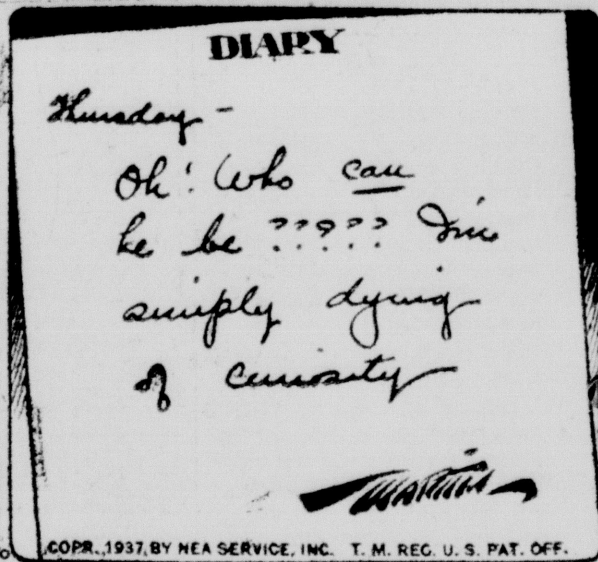 DIARY
Thursday -
Oh! Who can
he be ????? I'm
simply dying
of curiosity
MARTIN
COPR. 1937, BY NEA SERVICE, INC. T. M. REG. U. S. PAT. OFF.